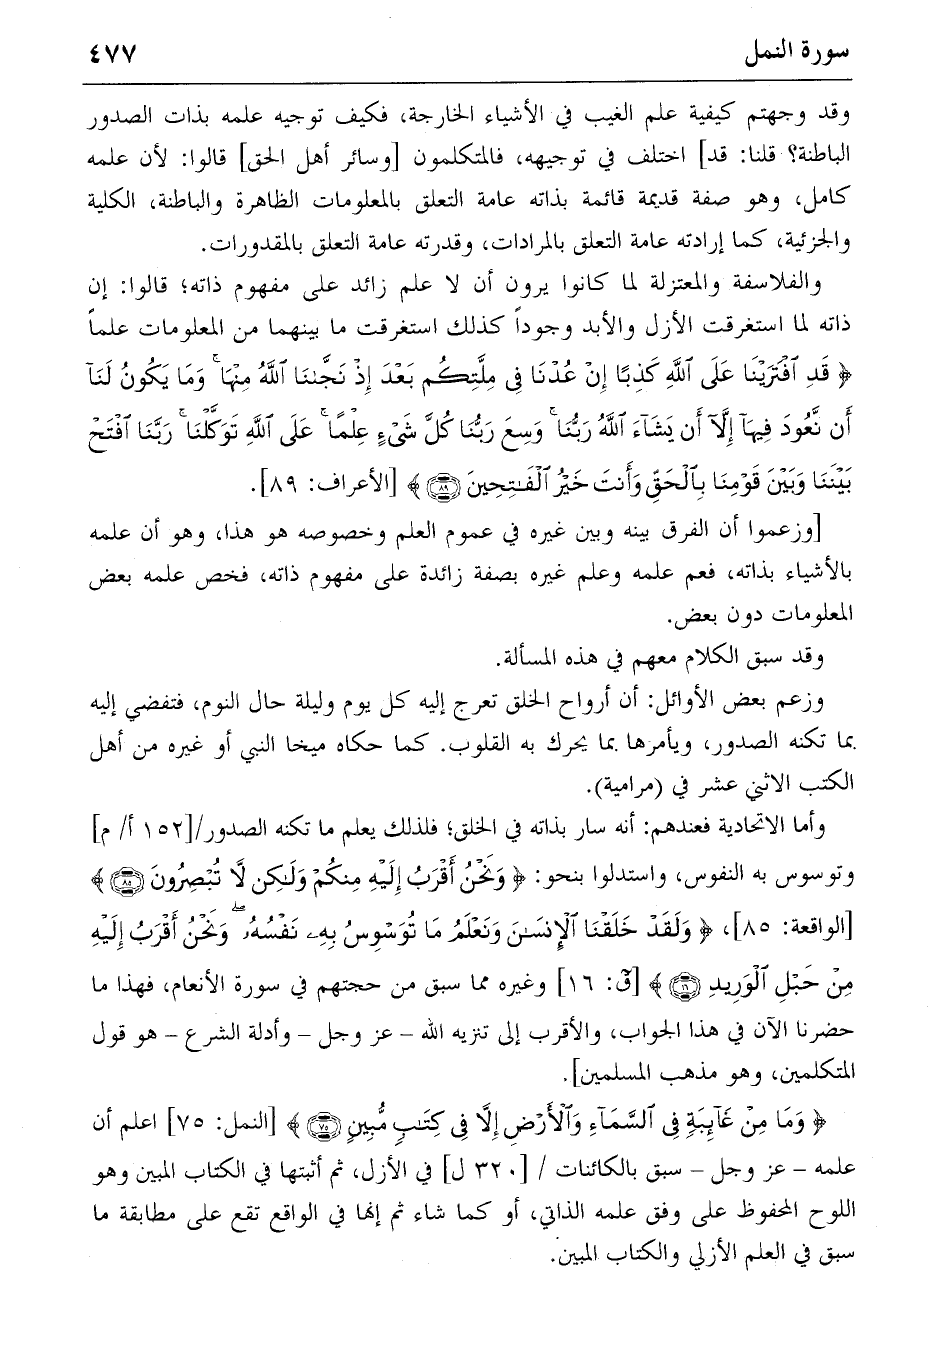 سورة النمل ٤٧٧
وقد وجهتم كيفية علم الغيب في الأشياء الخارجة، فكيف توجيه علمه بذات الصدور
الباطنة؟ قلنا: قد] اختلف في توجيهه، فالمتكلمون [وسائر أهل الحق] قالوا: لأن علمه
كامل، وهو صفة قديمة قائمة بذاته عامة التعلق بالمعلومات الظاهرة والباطنة، الكلية
والجزئية، كما إرادته عامة التعلق بالمرادات، وقدرته عامة التعلق بالمقدورات.
والفلاسفة والمعتزلة لما كانوا يرون أن لا علم زائد على مفهوم ذاته؛ قالوا: إن
ذاته لما استغرقت الأزل والأبد وجوداً كذلك استغرقت ما بينهما من المعلومات علماً
﴿ قَدِ ٱفْتَرَيْنَا عَلَى ٱللَّهِ كَذِبًا إِنْ عُدْنَا فِى مِلَّتِكُم بَعْدَ إِذْ نَجَّىٰنَا ٱللَّهُ مِنْهَا ۚ وَمَا يَكُونُ لَنَآ
أَن نَّعُودَ فِيهَآ إِلَّآ أَن يَشَآءَ ٱللَّهُ رَبُّنَا ۚ وَسِعَ رَبُّنَا كُلَّ شَىْءٍ عِلْمًا ۚ عَلَى ٱللَّهِ تَوَكَّلْنَا ۚ رَبَّنَا ٱفْتَحْ
بَيْنَنَا وَبَيْنَ قَوْمِنَا بِٱلْحَقِّ وَأَنتَ خَيْرُ ٱلْفَـٰتِحِينَ ٨٩ ﴾ [الأعراف: ٨٩].
[وزعموا أن الفرق بينه وبين غيره في عموم العلم وخصوصه هو هذا، وهو أن علمه
بالأشياء بذاته، فعم علمه وعلم غيره بصفة زائدة على مفهوم ذاته، فخص علمه بعض
المعلومات دون بعض.
وقد سبق الكلام معهم في هذه المسألة.
وزعم بعض الأوائل: أن أرواح الخلق تعرج إليه كل يوم وليلة حال النوم، فتفضي إليه
بما تكنه الصدور، ويأمرها بما يحرك به القلوب. كما حكاه ميخا النبي أو غيره من أهل
الكتب الاثني عشر في (مرامية).
وأما الاتحادية فعندهم: أنه سار بذاته في الخلق؛ فلذلك يعلم ما تكنه الصدور/[١٥٢ أ/ م]
وتوسوس به النفوس، واستدلوا بنحو: ﴿ وَنَحْنُ أَقْرَبُ إِلَيْهِ مِنكُمْ وَلَـٰكِن لَّا تُبْصِرُونَ ٨٥ ﴾
[الواقعة: ٨٥]، ﴿ وَلَقَدْ خَلَقْنَا ٱلْإِنسَـٰنَ وَنَعْلَمُ مَا تُوَسْوِسُ بِهِۦ نَفْسُهُۥ ۖ وَنَحْنُ أَقْرَبُ إِلَيْهِ
مِنْ حَبْلِ ٱلْوَرِيدِ ١٦ ﴾ [ق: ١٦] وغيره مما سبق من حجتهم في سورة الأنعام، فهذا ما
حضرنا الآن في هذا الجواب، والأقرب إلى تنزيه الله – عز وجل – وأدلة الشرع – هو قول
المتكلمين، وهو مذهب المسلمين].
﴿ وَمَا مِنْ غَآئِبَةٍ فِى ٱلسَّمَآءِ وَٱلْأَرْضِ إِلَّا فِى كِتَـٰبٍ مُّبِينٍ ٧٥ ﴾ [النمل: ٧٥] اعلم أن
علمه – عز وجل – سبق بالكائنات / [٣٢٠ ل] في الأزل، ثم أثبتها في الكتاب المبين وهو
اللوح المحفوظ على وفق علمه الذاتي، أو كما شاء ثم إنها في الواقع تقع على مطابقة ما
سبق في العلم الأزلي والكتاب المبين.